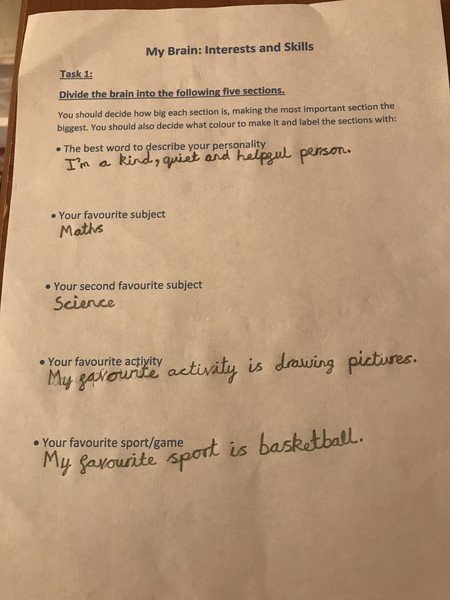 My Brain: Interests and Skills
Task 1:
Divide the brain into the following five sections.
You should decide how big each section is, making the most important section the
biggest. You should also decide what colour to make it and label the sections with:
• The best word to describe your personality
I'm a kind, quiet and helpful person.
• Your favourite subject
Maths
• Your second favourite subject
Science
• Your favourite activity
My favourite activity is drawing pictures.
• Your favourite sport/game
My favourite sport is basketball.